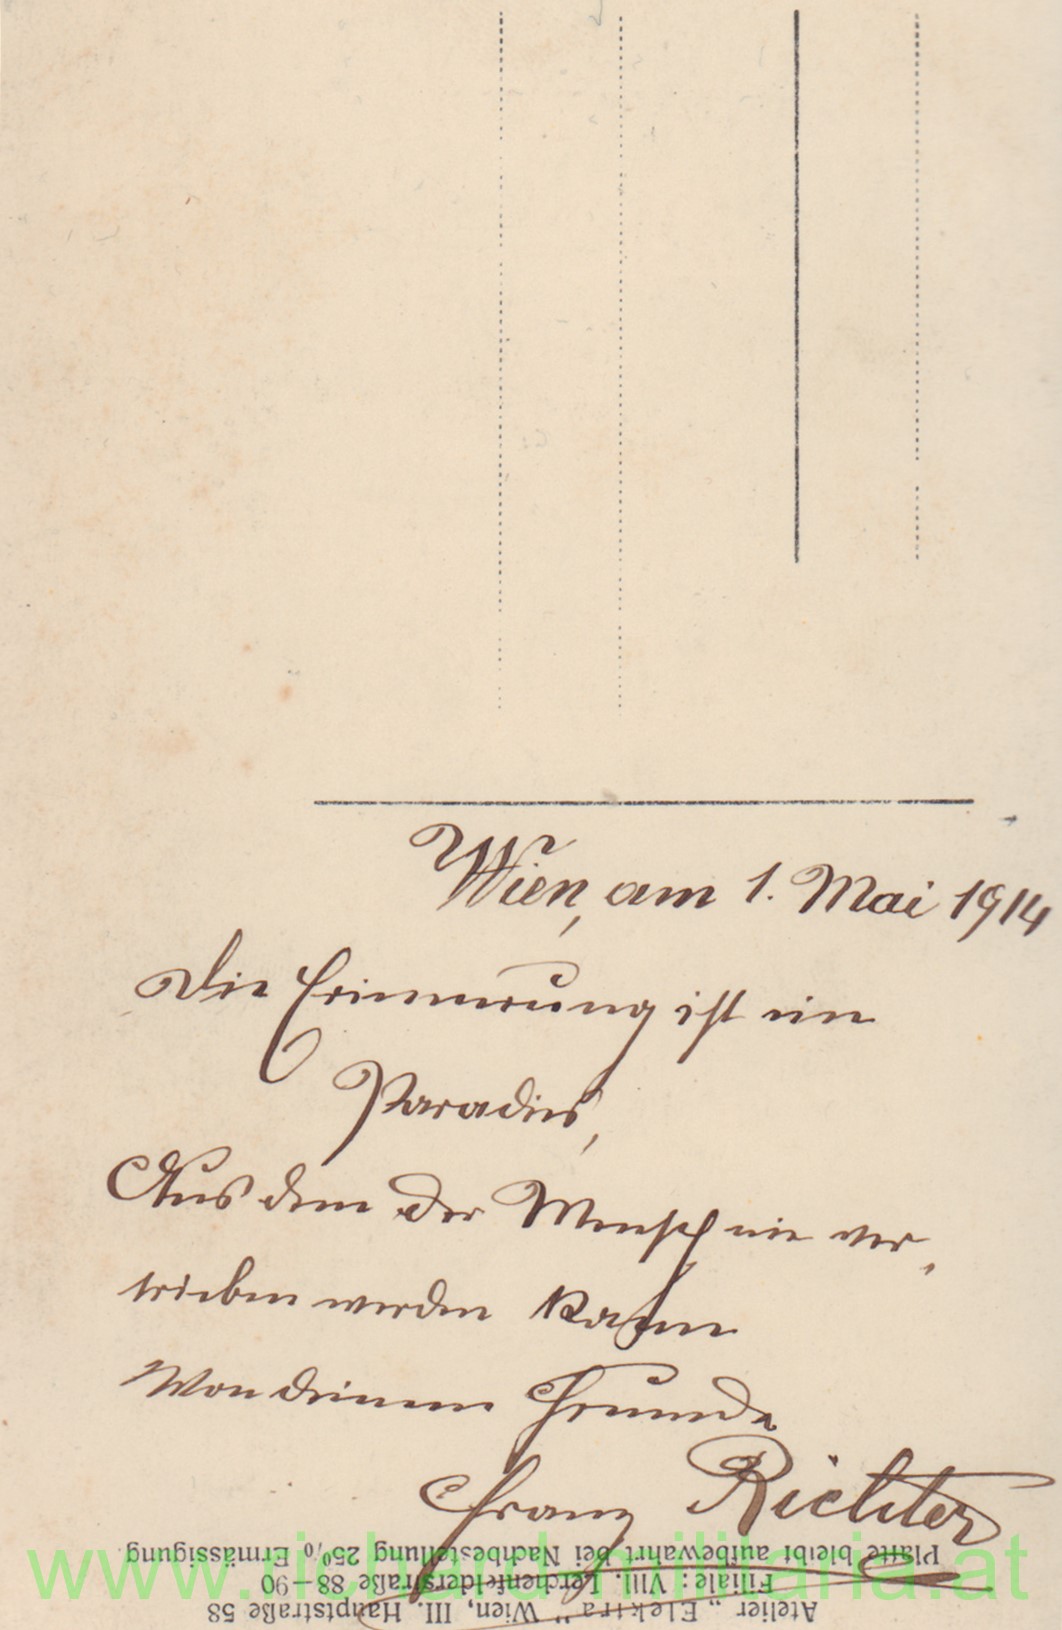 Wien, am 1. Mai 1914
Die Erinnerung ist ein
Paradies,
Aus dem der Mensch nie ver-
trieben werden kann
Von deinem Freunde
Franz Richter
Platte bleibt aufbewahrt bei Nachbestellung 25% Ermässigung
Filiale: VIII. Lerchenfelderstraße 88–90
Atelier „Elektra“ Wien, III. Hauptstraße 58
www.richard-militaria.at